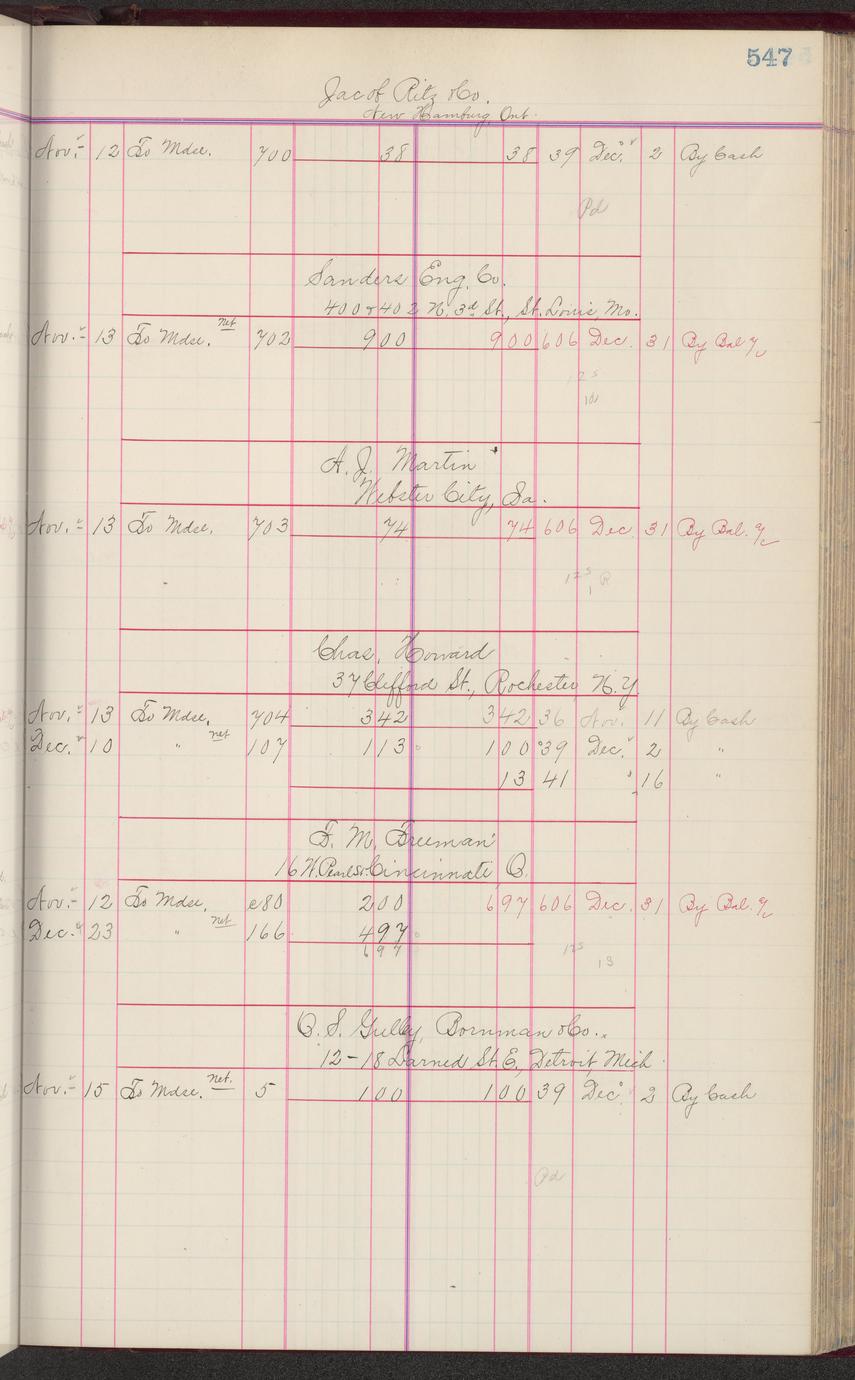 547
Jacob Ritz & Co.
New Hamburg, Ont.
Nov. 12 To Mdse. 700 38 38 39 Dec. 2 By Cash
Pd
Sanders Eng. Co.
400 & 402 N. 3d St., St. Louis, Mo.
Nov. 13 To Mdse. net 702 900 900 606 Dec. 31 By Bal. a/c
125
10
A. J. Martin
Webster City, Ia.
Nov. 13 To Mdse. 703 74 74 606 Dec. 31 By Bal. a/c
125
1
Chas. Howard
37 Clifford St., Rochester, N.Y.
Nov. 13 To Mdse. 704 342 342 36 Nov. 11 By Cash
Dec. 10 " net 107 113 100 39 Dec. 2 "
13 41 " 16 "
F. M. Freeman
16 W. Pearl St. Cincinnati, O.
Nov. 12 To Mdse. e80 200 697 606 Dec. 31 By Bal. a/c
Dec. 23 " net 166 497
697
125
13
O. S. Gulley, Bornman & Co.
12-18 Larned St. E., Detroit, Mich.
Nov. 15 To Mdse. Net. 5 100 100 39 Dec. 2 By Cash
Pd